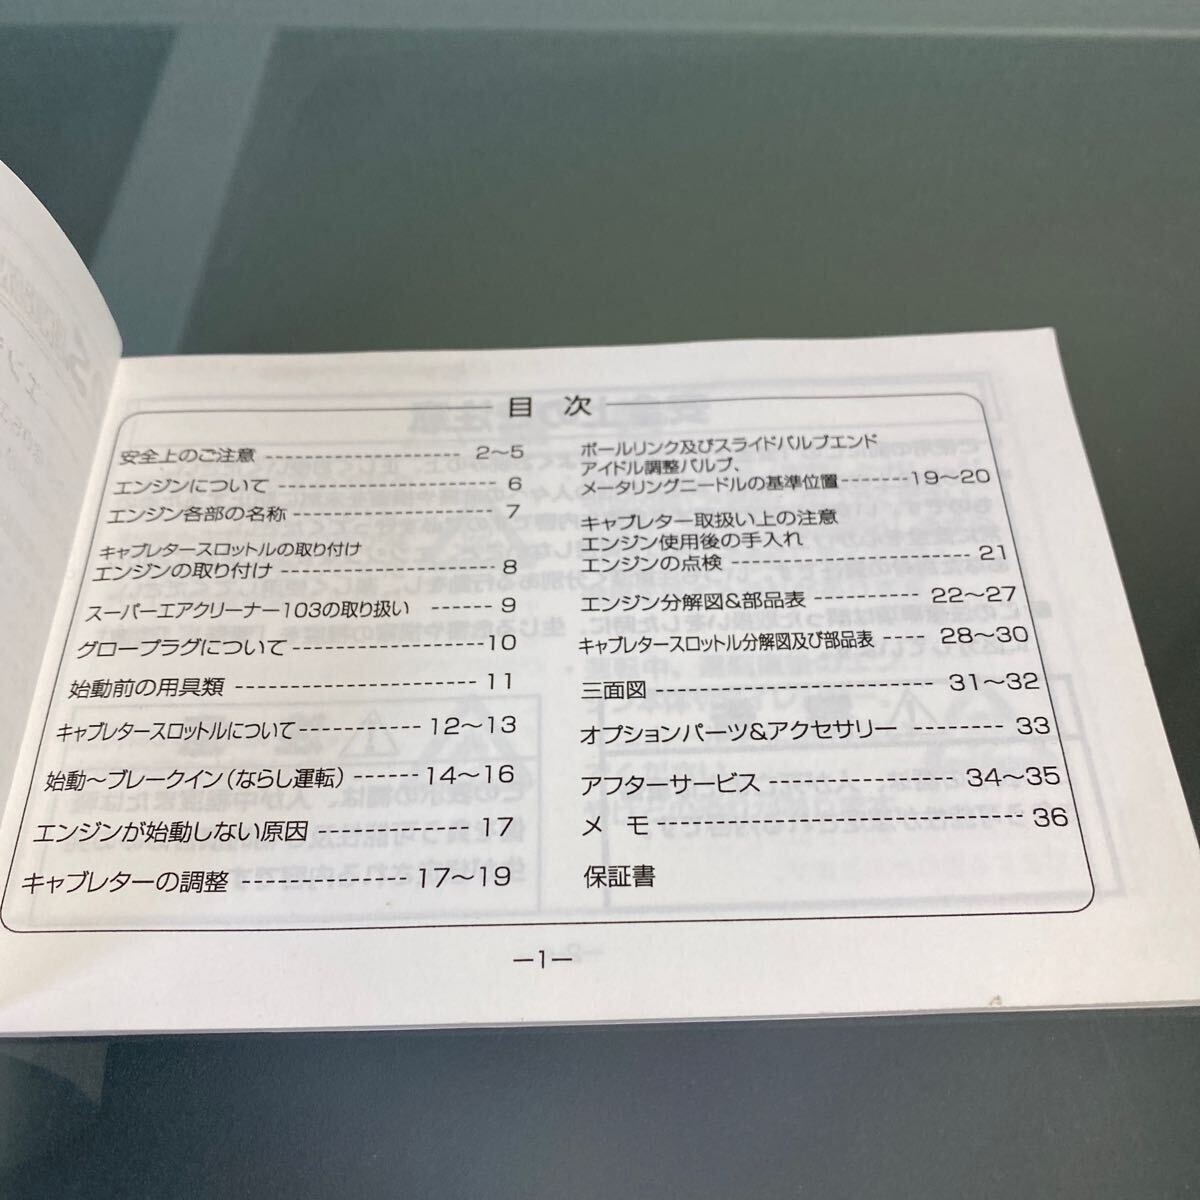 目 次
安全上のご注意 -------------------- 2～5
エンジンについて ---------------------- 6
エンジン各部の名称 -------------------- 7
キャブレタースロットルの取り付け
エンジンの取り付け -------------------- 8
スーパーエアクリーナー103の取り扱い ------ 9
グロープラグについて ------------------10
始動前の用具類 --------------------- 11
キャブレタースロットルについて ---------- 12～13
始動～ブレークイン(ならし運転) ------- 14～16
エンジンが始動しない原因 -------------- 17
キャブレターの調整 -------------- 17～19
ボールリンク及びスライドバルブエンド
アイドル調整バルブ、
メータリングニードルの基準位置-------19～20
キャブレター取扱い上の注意
エンジン使用後の手入れ
エンジンの点検 ---------------------- 21
エンジン分解図&部品表 ---------- 22～27
キャブレタースロットル分解図及び部品表 ---- 28～30
三面図 ------------------------ 31～32
オプションパーツ&アクセサリー -------- 33
アフターサービス ---------------- 34～35
メ モ ------------------------------ 36
保証書
—1—